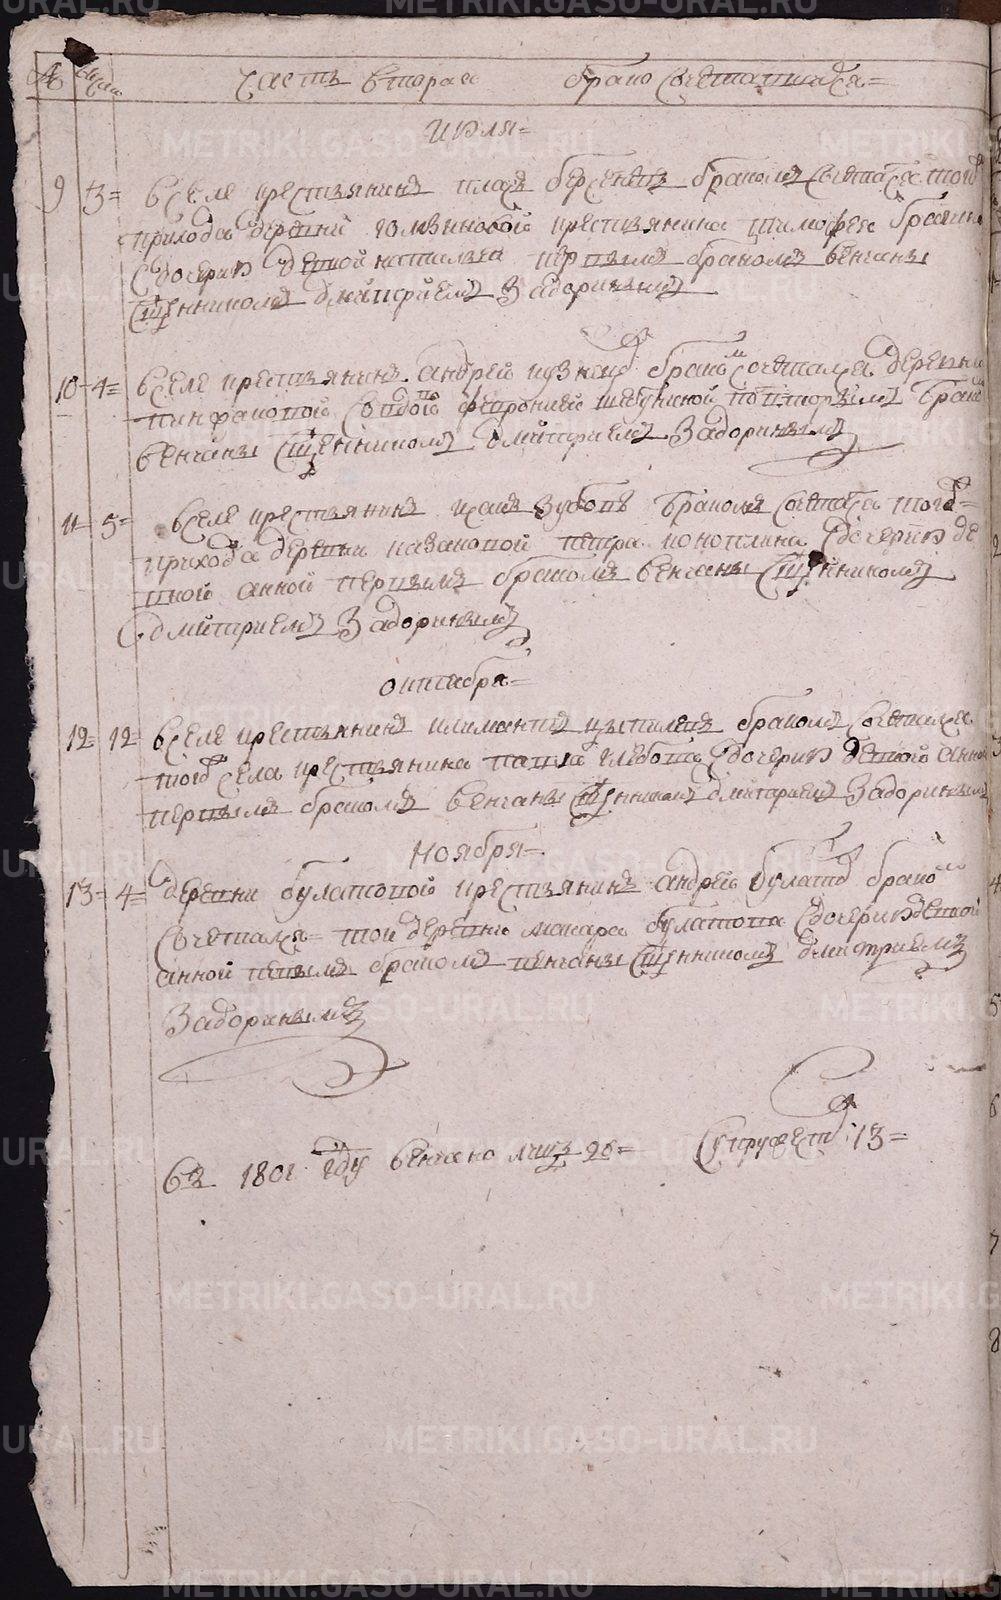 Часть вторая брако сочетающихся=
июля=
9 3= в селе крестьянинъ влас берсеневъ бракомъ сочетался тогожъ
прихода деревни крестьянина тимофея
с дочерию девкой натальей первымъ бракомъ венчаны
священникомъ дмитриемъ Задоринымъ
10 4= в селе крестьянинъ андрей кузнецов бракомъ сочетался деревни
панфиловой со вдовой февронией шебуниной вторымъ браком
венчаны священникомъ дмитриемъ Задоринымъ
11 5= в селе крестьянинъ исакъ зубовъ бракомъ сочетался тогожъ
прихода деревни казаковой петра коноплина с дочерию де
вкой анной первымъ бракомъ венчаны священникомъ
дмитриемъ Задоринымъ
октября=
12= 12= в селе крестьянинъ климантей бракомъ сочетался
тогожъ села крестьянина павла глебова с дочерию девкой анной
первымъ бракомъ венчаны священникомъ дмитриемъ Задоринымъ
ноября=
13= 4= деревни булатовой крестьянинъ андрей булатов браком
сочетался= той деревни макара булатова с дочерию девкой
анной первымъ бракомъ венчаны священникомъ дмитриемъ
Задоринымъ
въ 1801 году венчано лицъ 26= супружеств 13=
METRIKI.GASO-URAL.RU